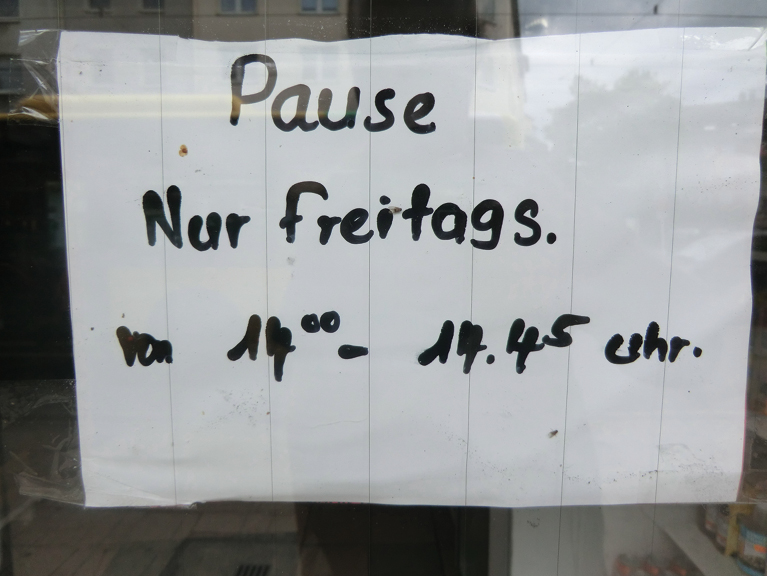 Pause
Nur freitags.
von 14⁰⁰ - 14.45 Uhr.